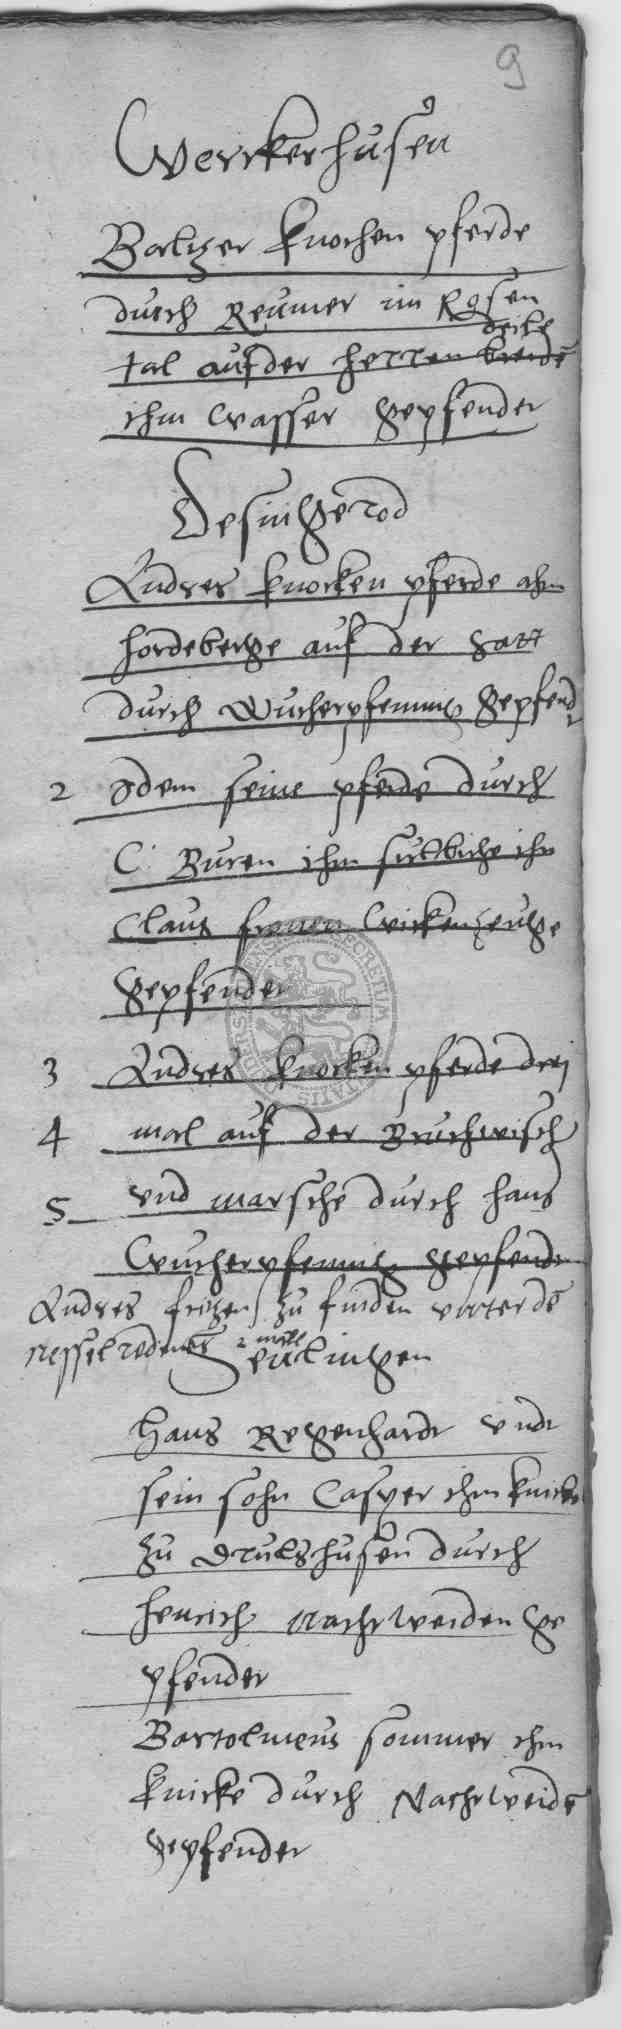 9
Werckerhusen
Baltzer knochen pferde
durch Reumer im Rosen
deile
tal auf der herren breide
ihm wasser gepfendet
Desingerod
Andres knocken pferde ahm
hordeberge auf der satt
durch Wucherpfennig gepfend
2 Idem seine pferde durch
C. Buren ihm
Claus wicken
gepfendet
3 Andres knocken pferde drei
4 mal auf der Bruchwisch
5 und marsche durch hans
Wucherpfennig gepfendt
Andres fritzen zu finden
nesselredens
Seulingen
Hans Regenhardt undt
sein sohn Casper ihm knicke
zu Drulshusen durch
henrich Nachtweiden ge
pfendet
Bartolmeus sommer ihm
knicke durch Nachtweide
gepfendet